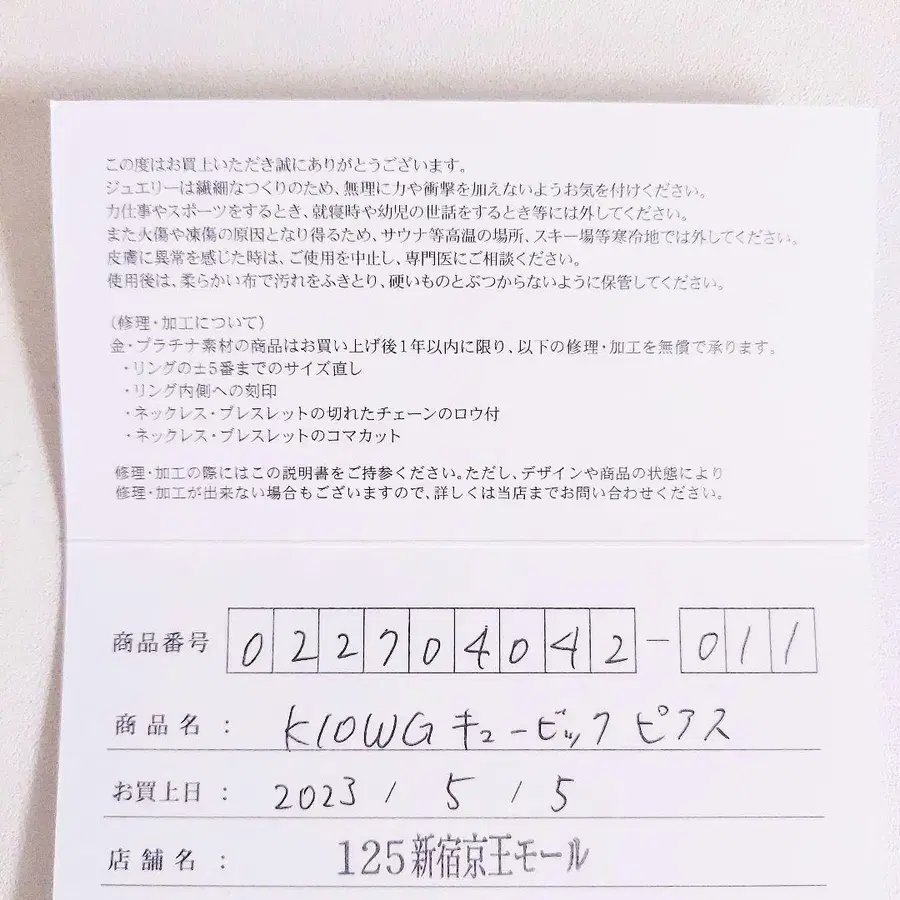 この度はお買上いただき誠にありがとうございます。
ジュエリーは繊細なつくりのため、無理に力や衝撃を加えないようお気を付けください。
力仕事やスポーツをするとき、就寝時や幼児の世話をするとき等には外してください。
また火傷や凍傷の原因となり得るため、サウナ等高温の場所、スキー場等寒冷地では外してください。
皮膚に異常を感じた時は、ご使用を中止し、専門医にご相談ください。
使用後は、柔らかい布で汚れをふきとり、硬いものとぶつからないように保管してください。
(修理・加工について)
金・プラチナ素材の商品はお買い上げ後1年以内に限り、以下の修理・加工を無償で承ります。
・リングの±5番までのサイズ直し
・リング内側への刻印
・ネックレス・ブレスレットの切れたチェーンのロウ付
・ネックレス・ブレスレットのコマカット
修理・加工の際にはこの説明書をご持参ください。ただし、デザインや商品の状態により
修理・加工が出来ない場合もございますので、詳しくは当店までお問い合わせください。
商品番号 022704042-011
商品名： K10WGキュービックピアス
お買上日： 2023/5/5
店舗名： 125新宿京王モール